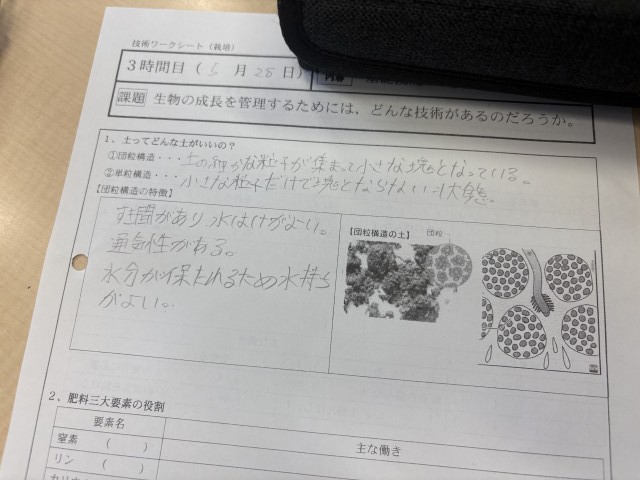 技術ワークシート（栽培）
3時間目（5月28日）
内容
課題 生物の成長を管理するためには、どんな技術があるのだろうか。
1．土ってどんな土がいいの？
①団粒構造・・・土の細かな粒子が集まって小さな塊となっている。
②単粒構造・・・小さな粒子だけで塊とならない状態。
【団粒構造の特徴】
すき間があり 水はけがよい。
通気性がある。
水分が保たれるため水持ち
がよい。
【団粒構造の土】
団粒
2．肥料三大要素の役割
要素名
主な働き
窒素（ ）
リン（ ）